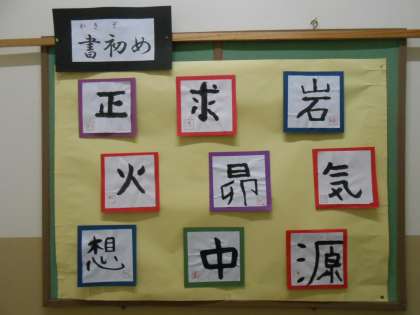 かきぞ
書初め
正 求 岩
火 昴 気
想 中 源